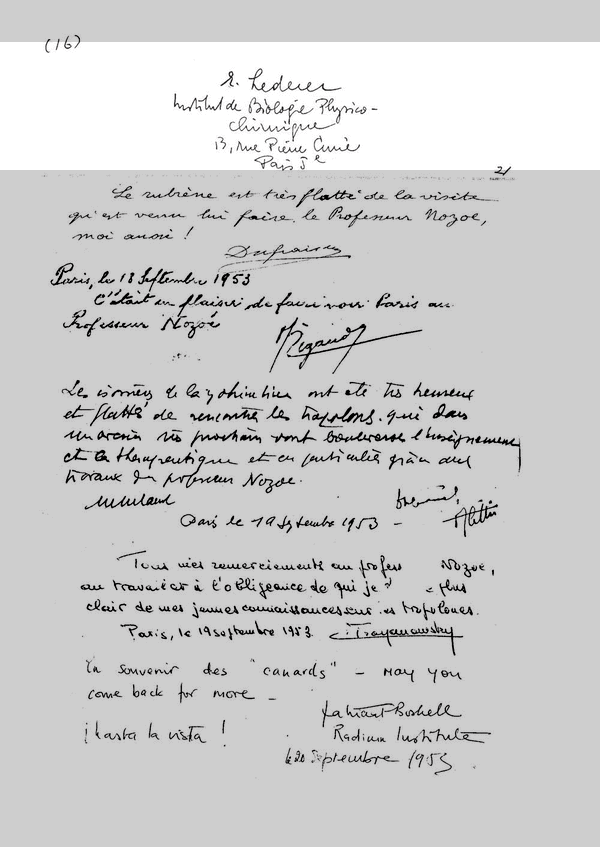 (16)
E. Lederer
Institut de Biologie Physico-
chimique
13, rue Pierre Curie
Paris 5e
21
Le rubrène est très flatté de la visite
qu'est venu lui faire le Professeur Nozoe,
moi aussi !
Dufraisse
Paris, le 18 Septembre 1953
C'était un plaisir de faire voir Paris au
Professeur Nozoé
Rigaud
Les isomères de la yohimbine ont été très heureux
et flattés de rencontrer les tropolons qui dans
un avenir très prochain vont bouleverser l'enseignement
et la therapeutique et en particulier grâce aux
travaux du professeur Nozoe.
Paris le 19 Septembre 1953 -
Tous mes remerciements au profess Nozoe,
au travail et à l'obligeance de qui je plus
clair de mes jeunes connaissances sur es tropolones.
Paris, le 19 septembre 1953. Troyanowsky
En souvenir des "canards" - May you
come back for more -
Radium Institute
¡hasta la vista!
le 20 Septembre 1953